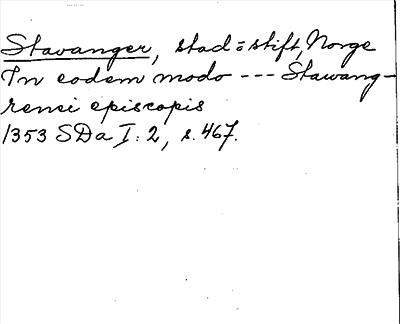 Stavanger, stad = stift, Norge
In eodem modo --- Stawang-
rensi episcopis
1353 SDa I: 2, s. 467.